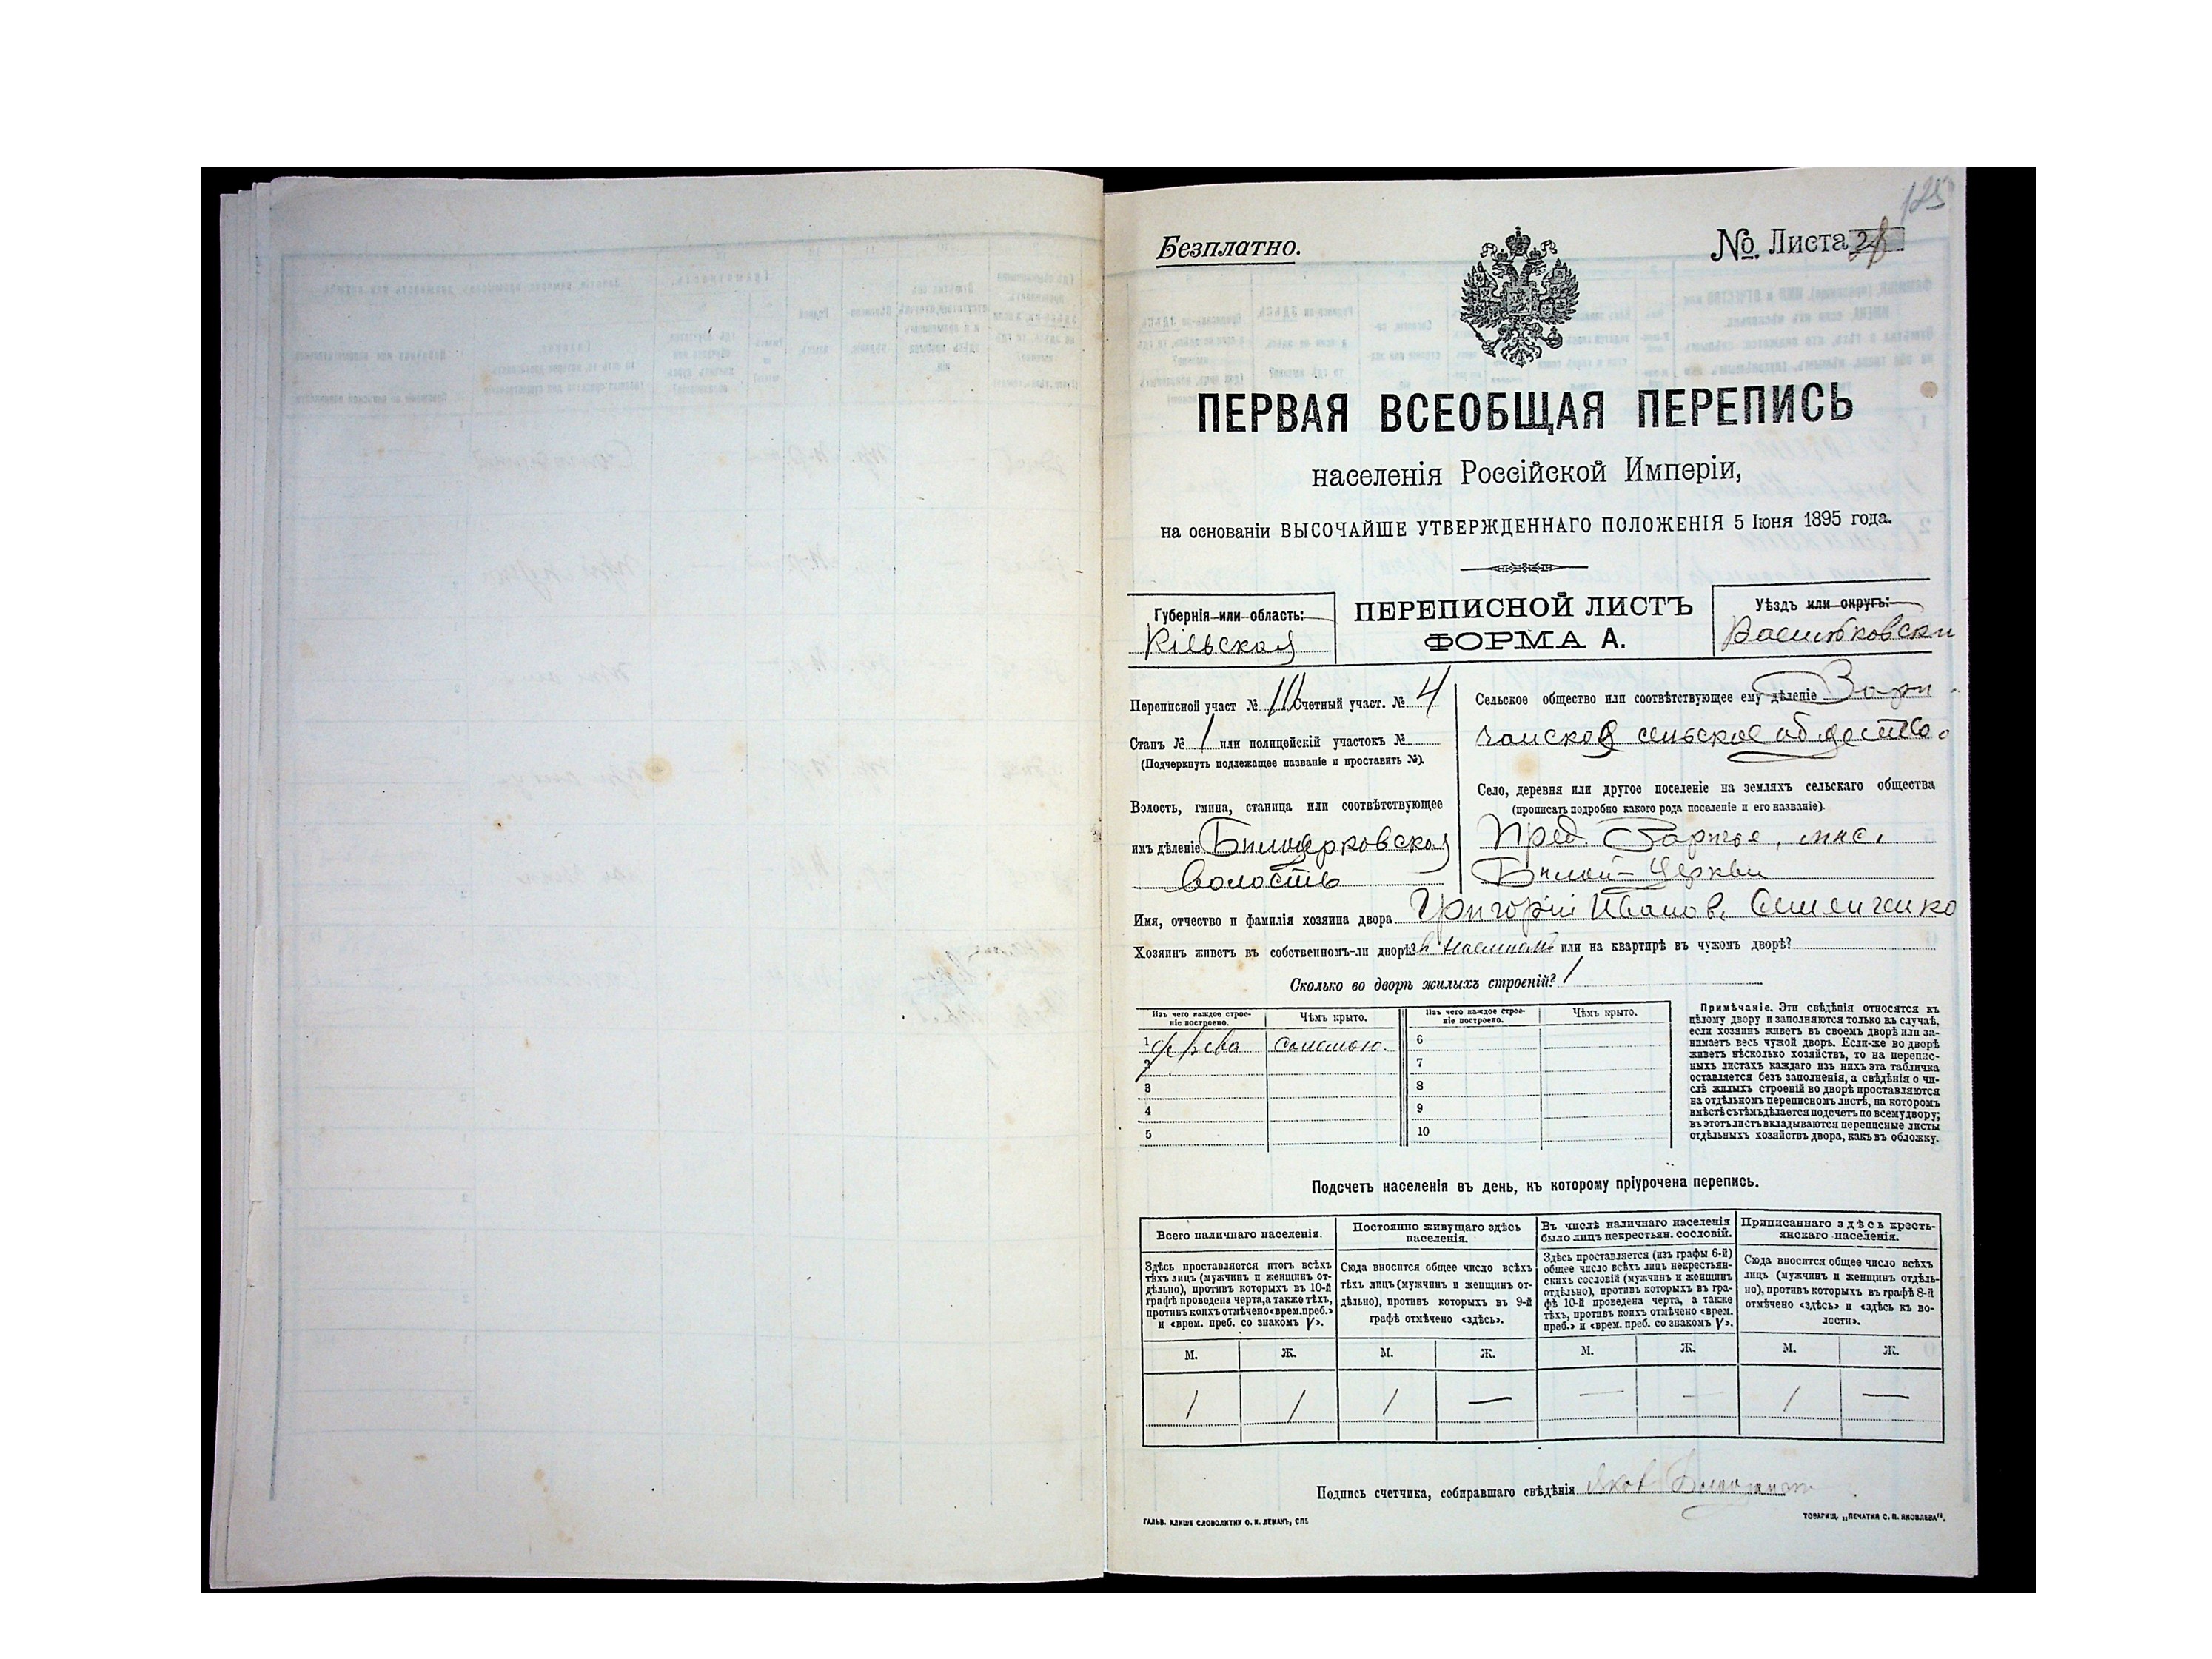 125
Безплатно.
№ Листа 28
ПЕРВАЯ ВСЕОБЩАЯ ПЕРЕПИСЬ
населенія Россійской Имперіи,
на основаніи ВЫСОЧАЙШЕ УТВЕРЖДЕННАГО ПОЛОЖЕНІЯ 5 Іюня 1895 года.
Губернія или область:
Кіевская
ПЕРЕПИСНОЙ ЛИСТЪ
ФОРМА А.
Уѣздъ или округъ:
Васильковски
Переписной участ № III Счетный участ. № 4
Станъ № 1 или полицейскій участокъ №
(Подчеркнуть подлежащее названіе и проставить №).
Волость, гмина, станица или соотвѣтствующее
имъ дѣленіе Билоцерковская
волость
Сельское общество или соотвѣтствующее ему дѣленіе Зари-
чанское сельское общество.
Село, деревня или другое поселеніе на земляхъ сельскаго общества
(прописать подробно какого рода поселеніе и его названіе).
Пред. Заричье, мис.
Билой-Церкви
Имя, отчество и фамилія хозяина двора Григорій Иванов. Семенченко
Хозяинъ живетъ въ собственномъ-ли дворѣ? в наемномъ или на квартирѣ въ чужомъ дворѣ?
Сколько во дворѣ жилыхъ строеній? 1
Изъ чего каждое строе-
ніе построено.
Чѣмъ крыто.
Изъ чего каждое строе-
ніе построено.
Чѣмъ крыто.
1 дерева соломою. 6
2 7
3 8
4 9
5 10
Примѣчаніе. Эти свѣдѣнія относятся къ
цѣлому двору и заполняются только въ случаѣ,
если хозяинъ живетъ въ своемъ дворѣ или за-
нимаетъ весь чужой дворъ. Если-же во дворѣ
живетъ нѣсколько хозяйствъ, то на перепис-
ныхъ листахъ каждаго изъ нихъ эта табличка
оставляется безъ заполненія, а свѣдѣнія о чи-
слѣ жилыхъ строеній во дворѣ проставляются
на отдѣльномъ переписномъ листѣ, на которомъ
вмѣстѣ съ тѣмъ дѣлается подсчетъ по всему двору;
въ этотъ листъ вкладываются переписные листы
отдѣльныхъ хозяйствъ двора, какъ въ обложку.
Подсчетъ населенія въ день, къ которому пріурочена перепись.
Всего наличнаго населенія.
Здѣсь проставляется итогъ всѣхъ
тѣхъ лицъ (мужчинъ и женщинъ от-
дѣльно), противъ которыхъ въ 10-й
графѣ проведена черта, а также тѣхъ,
противъ коихъ отмѣчено «врем. преб.»
и «врем. преб. со знакомъ V».
Постоянно живущаго здѣсь
населенія.
Сюда вносится общее число всѣхъ
тѣхъ лицъ (мужчинъ и женщинъ от-
дѣльно), противъ которыхъ въ 9-й
графѣ отмѣчено «здѣсь».
Въ числѣ наличнаго населенія
было лицъ некрестьян. сословій.
Здѣсь проставляется (изъ графы 6-й)
общее число всѣхъ лицъ некрестьян-
скихъ сословій (мужчинъ и женщинъ
отдѣльно), противъ которыхъ въ гра-
фѣ 10-й проведена черта, а также
тѣхъ, противъ коихъ отмѣчено «врем.
преб.» и «врем. преб. со знакомъ V».
Приписаннаго здѣсь кресть-
янскаго населенія.
Сюда вносится общее число всѣхъ
лицъ (мужчинъ и женщинъ отдѣль-
но), противъ которыхъ въ графѣ 8-й
отмѣчено «здѣсь» и «здѣсь къ во-
лости».
М. Ж. М. Ж. М. Ж. М. Ж.
1 1 1 — — — 1 —
Подпись счетчика, собиравшаго свѣдѣнія Яков
ГАЛЬВ. КЛИШЕ СЛОВОЛИТНИ О. И. ЛЕМАНЪ, СПБ
ТОВАРИЩ. „ПЕЧАТНЯ С. П. ЯКОВЛЕВА“.